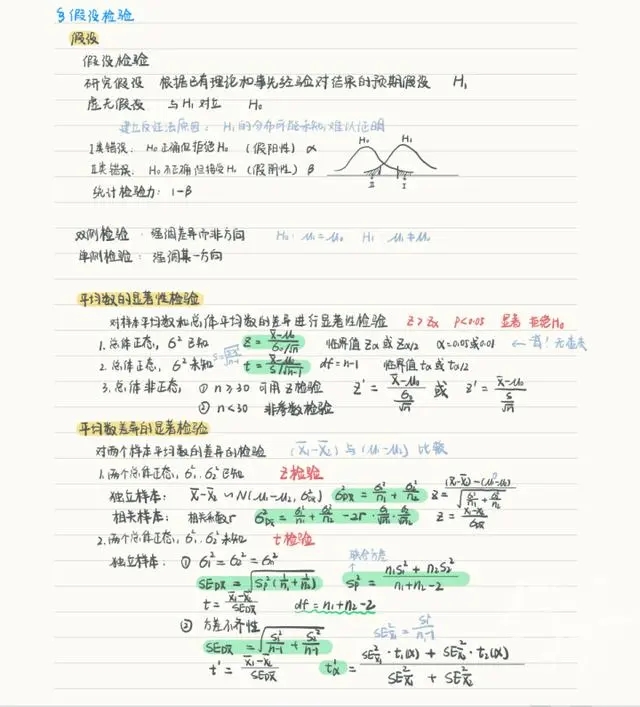 §假设检验
假设
假设检验
研究假设 根据已有理论和事先经验对结果的预期假设 H₁
虚无假设 与H₁对立 H₀
建立反证法原因：H₁的分布可能未知，难以证明
I类错误：H₀正确但拒绝H₀ （假阳性） α
II类错误：H₀不正确但接受H₀ （假阴性） β
H₀ H₁
II I
统计检验力：1-β
双侧检验：强调差异而非方向 H₀：μ₁=μ₀ H₁：μ₁≠μ₀
单侧检验：强调某一方向
平均数的显著性检验
对样本平均数和总体平均数的差异进行显著性检验 Z>Zα P<0.05 显著 拒绝H₀
1.总体正态，σ²已知 Z = (X̄-μ₀)/(σ₀/√n) 临界值 Zα 或 Zα/2 α=0.05或0.01
2.总体正态，σ²未知 t = (X̄-μ₀)/(s/√n-1) df=n-1 临界值 tα 或 tα/2
3.总体非正态， ① n≥30 可用Z检验 Z' = (X̄-μ₀)/(σ₀/√n) 或 Z' = (X̄-μ₀)/(s/√n)
② n<30 非参数检验
平均数差异的显著性检验
对两个样本平均数的差异的检验 (X̄₁-X̄₂)与(μ₁-μ₂)比较
1.两个总体正态，σ₁²，σ₂²已知 Z检验
独立样本： X̄₁-X̄₂ ∽ N(μ₁-μ₂, σ²DX̄) σ²DX̄ = σ₁²/n₁ + σ₂²/n₂
相关样本： 相关系数r σ²DX̄ = σ₁²/n₁ + σ₂²/n₂ - 2r·σ₁/√n₁·σ₂/√n₂ Z = (X̄₁-X̄₂)/σDX̄
2.两个总体正态，σ₁²，σ₂²未知 t检验
独立样本： ① σ₁²=σ₂²=σ₀²
联合方差
SEDX̄ = √(Sp²(1/n₁+1/n₂)) Sp² = (n₁S₁² + n₂S₂²)/(n₁+n₂-2)
t = (X̄₁-X̄₂)/SEDX̄ df=n₁+n₂-2
② 方差不齐性 SE²X̄₁ = S₁²/(n₁-1)
SEDX̄ = √(S₁²/(n₁-1) + S₂²/(n₂-1))
t' = (X̄₁-X̄₂)/SEDX̄ t'α = (SE²X̄₁·t₁(α) + SE²X̄₂·t₂(α))/(SE²X̄₁ + SE²X̄₂)